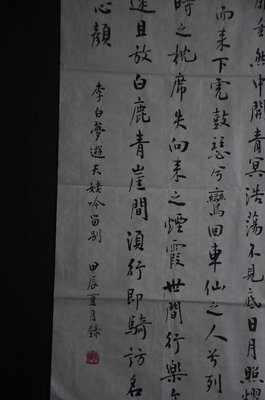 然中開青冥浩蕩不見底日月照耀
而来下虎鼓瑟兮鸞回車仙之人兮列
時之枕席失向来之煙霞世間行樂
還且放白鹿青崖間須行即騎訪名
心顏
李白夢遊天姥吟留别 甲辰夏月録